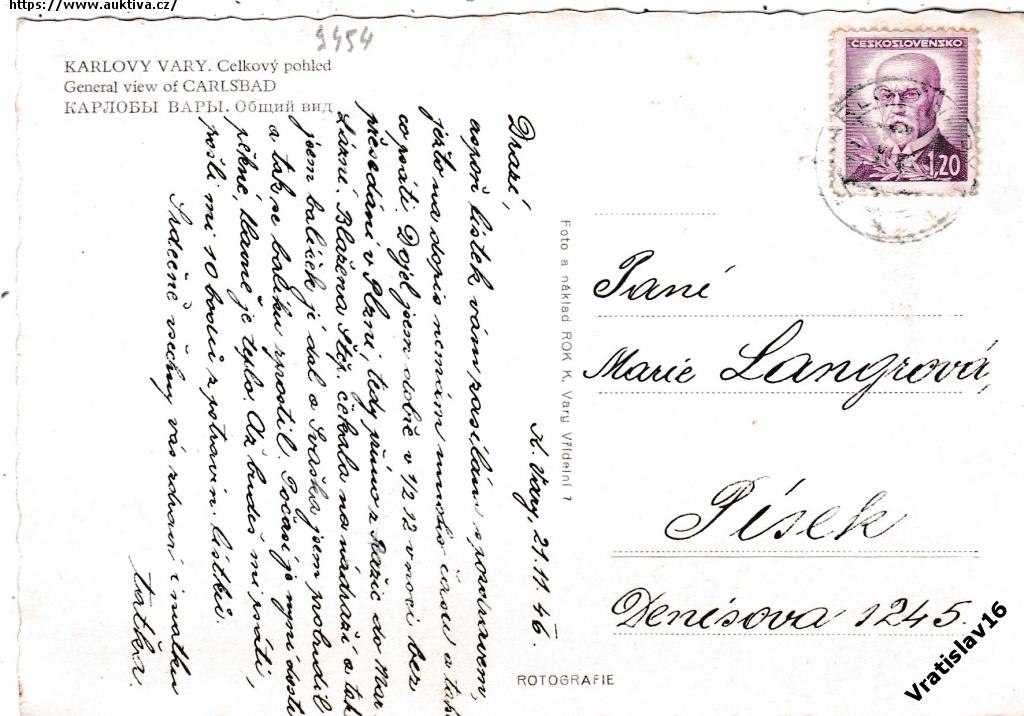 https://www.auktiva.cz/
9454
KARLOVY VARY. Celkový pohled
General view of CARLSBAD
КАРЛОБЫ ВАРЫ. Общий вид
ČESKOSLOVENSKO
1,20
K. Vary, 21.11.46
Drazí,
aspoň lístek vám zasílám s pozdravem,
ježto na dopis nemám mnoho času a tak
co psáti. Dojel jsem dobře v 1/2 12 v noci bez
přesedání v Plzni, tedy přímo z Ražic do Mar.
Lázní. Blažena Štěp. čekala na nádraží a tak
jsem balíček jí dal a Svaška jsem probudil
a tak se balíku zhostil. Počasí je nyní dosti
pěkné, hlavně je teplo. Až budeš mi psáti,
pošli mi 10 bodů z potravin. lístků.
Srdečně všechny vás zdraví i matku
taťka.
Foto a náklad ROK K. Vary Vřídelní 7
Paní
Marie Langrová,
Písek
Denisova 1245.
ROTOGRAFIE
Vratislav16